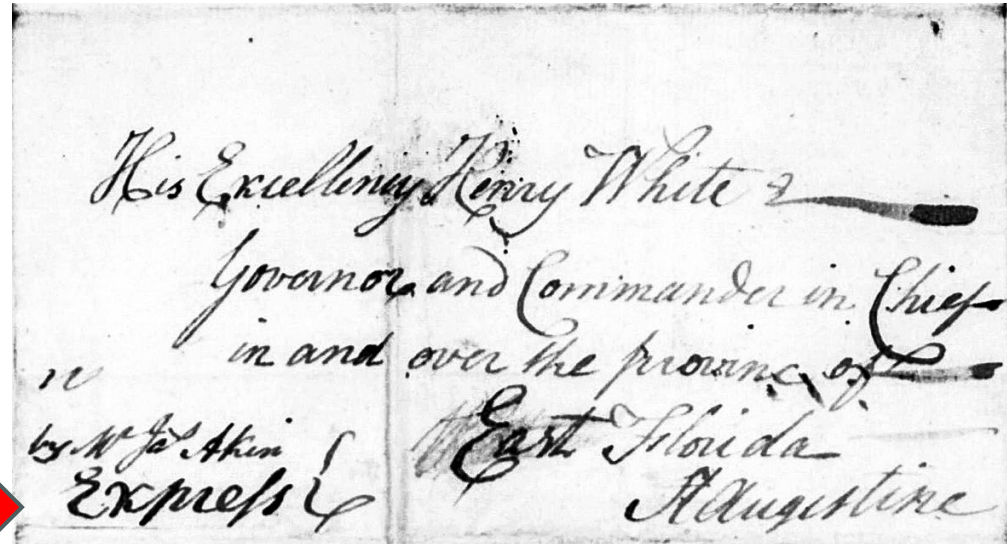 His Excellency Henry White &
Governor and Commander in Chief
in and over the provinc of
East Florida
St Augustine
by Mr Jas Akin
Express